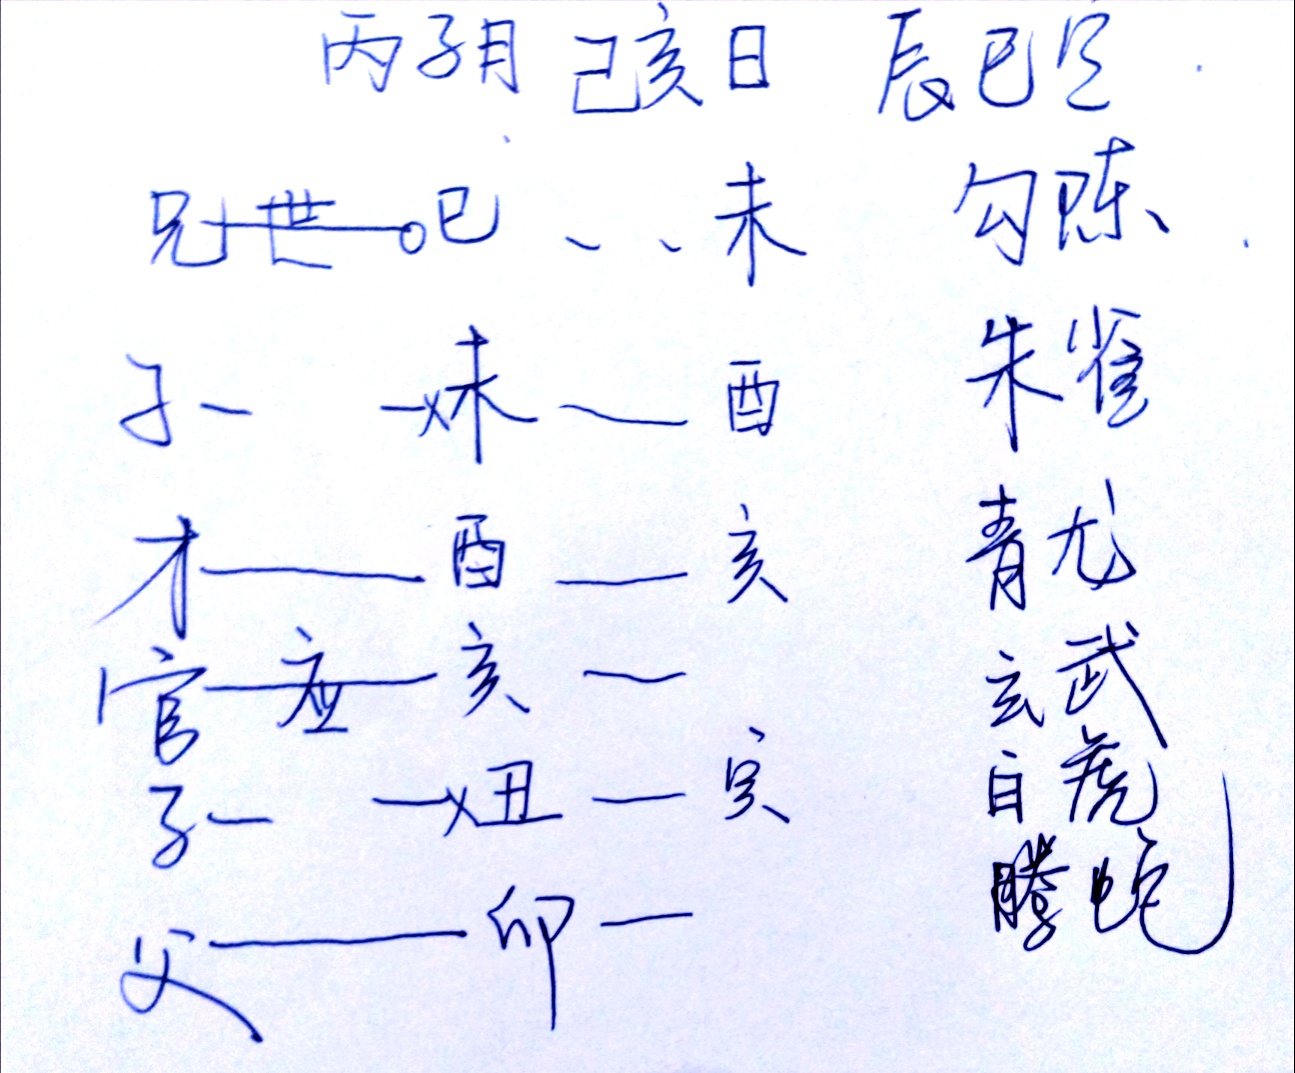 丙子月 己亥日 辰巳空
兄 世 巳 未 勾陈
子 未 酉 朱雀
才 酉 亥 青龙
官 应 亥 玄武
子 丑 寅 白虎
父 卯 腾蛇